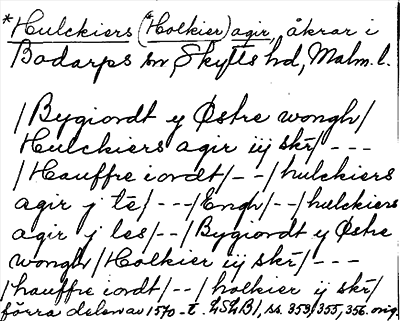 *Hulckiers (*Holkier) agir, åkrar i
Bodarps sn Skytts hd, Malm. l.
/Bygiordt y Østre wongh/
Hulckiers agir iij skr̄/ - - -
/Hauffre iordt/ - - /hulckiers
agir j tē/ - - - /Engh/ - - /hulckiers
agir j les/ - - /Bygiordt y Østre
wongh/Holkier iij skr̄/ - - -
/hauffre iordt/ - - /holkier ij skr̄/
förra delen av 1570-t. LSLB1, ss. 353, 355, 356. orig.